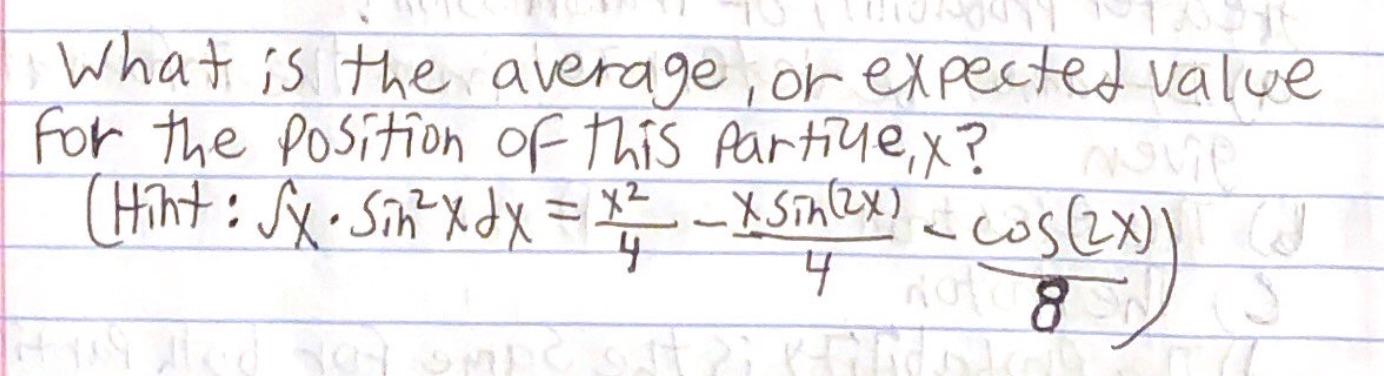 What is the average, or expected value
for the position of this particle, x?
(Hint: ∫x·sin²xdx = x²/4 - xsin(2x)/4 - cos(2x)/8)